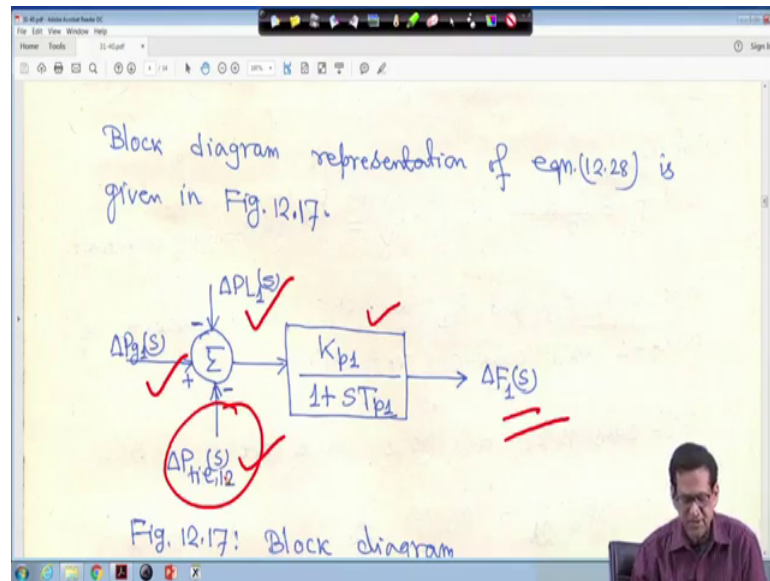 31-40.pdf - Adobe Acrobat Reader DC
File Edit View Window Help
Home Tools 31-40.pdf × Sign In
Block diagram representation of eqn.(12.28) is
given in Fig. 12.17.
ΔPL1(S)
-
ΔPg1(S)
+
Σ
-
Kp1
1+STp1
ΔF1(S)
ΔPtie,12(S)
Fig. 12.17: Block diagram